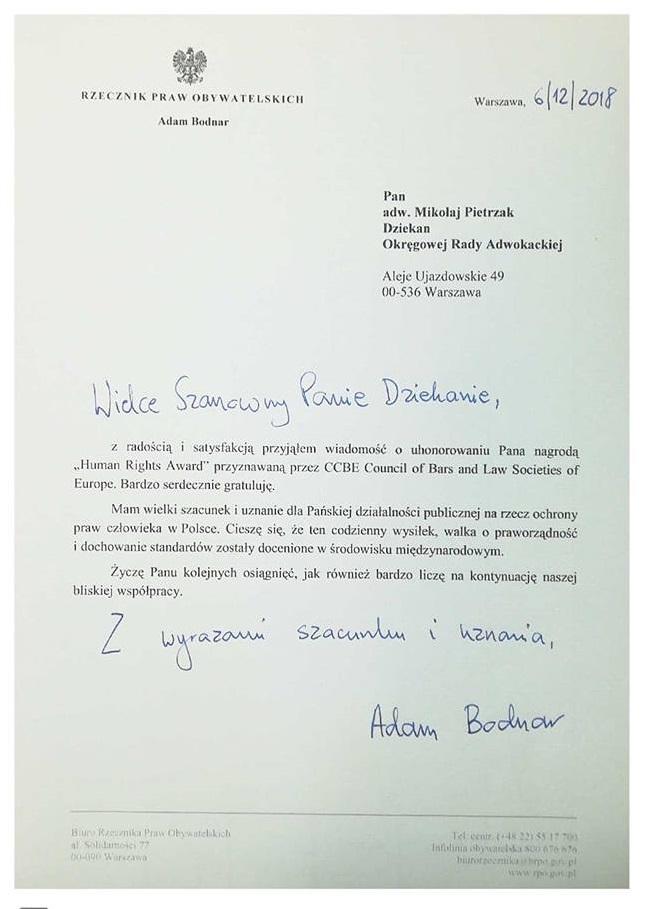 RZECZNIK PRAW OBYWATELSKICH
Adam Bodnar
Warszawa, 6/12/2018
Pan
adw. Mikołaj Pietrzak
Dziekan
Okręgowej Rady Adwokackiej
Aleje Ujazdowskie 49
00-536 Warszawa
Wielce Szanowny Panie Dziekanie,
z radością i satysfakcją przyjąłem wiadomość o uhonorowaniu Pana nagrodą
„Human Rights Award” przyznawaną przez CCBE Council of Bars and Law Societies of
Europe. Bardzo serdecznie gratuluję.
Mam wielki szacunek i uznanie dla Pańskiej działalności publicznej na rzecz ochrony
praw człowieka w Polsce. Cieszę się, że ten codzienny wysiłek, walka o praworządność
i dochowanie standardów zostały docenione w środowisku międzynarodowym.
Życzę Panu kolejnych osiągnięć, jak również bardzo liczę na kontynuację naszej
bliskiej współpracy.
Z wyrazami szacunku i uznania,
Adam Bodnar
Biuro Rzecznika Praw Obywatelskich
al. Solidarności 77
00-090 Warszawa
Tel. centr. (+48 22) 55 17 700
Infolinia obywatelska 800 676 676
biurorzecznika@brpo.gov.pl
www.rpo.gov.pl